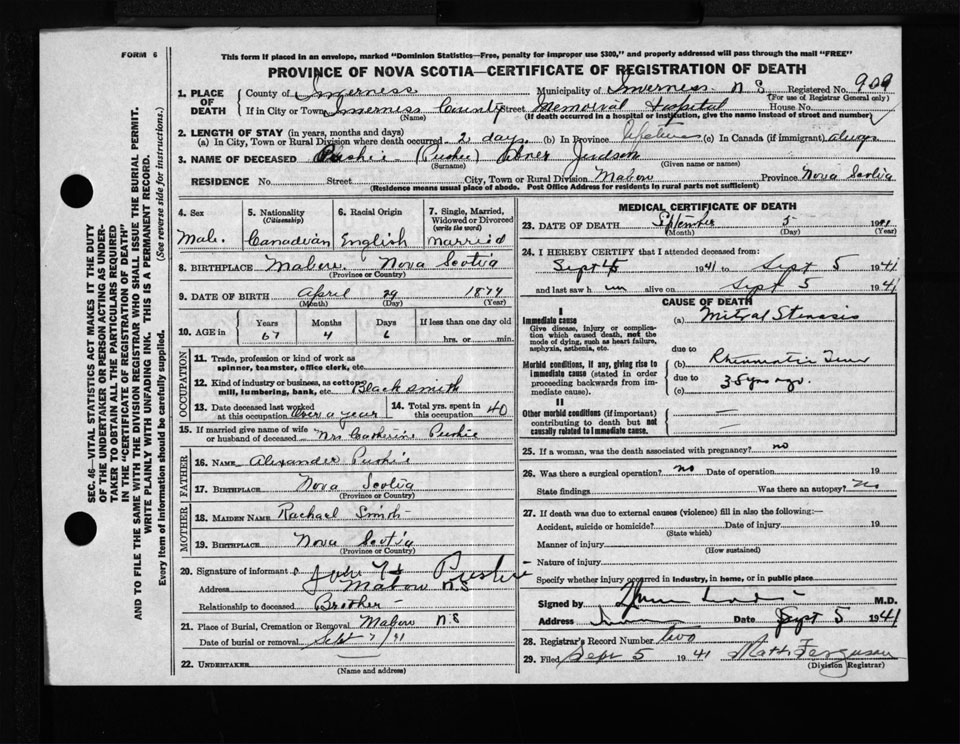 FORM 6
This form if placed in an envelope, marked "Dominion Statistics—Free, penalty for improper use $300," and properly addressed will pass through the mail "FREE"
PROVINCE OF NOVA SCOTIA—CERTIFICATE OF REGISTRATION OF DEATH
SEC. 46—VITAL STATISTICS ACT MAKES IT THE DUTY
OF THE UNDERTAKER OR PERSON ACTING AS UNDER-
TAKER TO OBTAIN ALL THE PARTICULARS REQUIRED
IN THE "CERTIFICATE OF REGISTRATION OF DEATH"
AND TO FILE THE SAME WITH THE DIVISION REGISTRAR WHO SHALL ISSUE THE BURIAL PERMIT.
WRITE PLAINLY WITH UNFADING INK. THIS IS A PERMANENT RECORD.
Every item of information should be carefully supplied. (See reverse side for instructions.)
1. PLACE OF DEATH
County of Inverness Municipality of Inverness N S Registered No. 909
(For use of Registrar General only)
If in City or Town Inverness County Street Memorial Hospital House No.
(Name) (If death occurred in a hospital or institution, give the name instead of street and number)
2. LENGTH OF STAY (in years, months and days)
(a) In City, Town or Rural Division where death occurred 2 days (b) In Province (c) In Canada (if immigrant) always
3. NAME OF DECEASED (Puskie) Abner Judson
(Surname) (Given name or names)
RESIDENCE No. Street City, Town or Rural Division Mabou Province Nova Scotia
(Residence means usual place of abode. Post Office Address for residents in rural parts not sufficient)
4. Sex Male
5. Nationality (Citizenship) Canadian
6. Racial Origin English
7. Single, Married, Widowed or Divorced (write the word) Married
8. BIRTHPLACE Mabou Nova Scotia
(Province or Country)
9. DATE OF BIRTH April 29 1874
(Month) (Day) (Year)
10. AGE in Years Months Days If less than one day old
67 4 6 hrs. or min.
OCCUPATION
11. Trade, profession or kind of work as
spinner, teamster, office clerk, etc.
12. Kind of industry or business, as cotton
mill, lumbering, bank, etc. Blacksmith
13. Date deceased last worked
at this occupation over a year
14. Total yrs. spent in
this occupation 40
15. If married give name of wife
or husband of deceased Mrs Catherine Puskie
FATHER
16. NAME Alexander Puskie
17. BIRTHPLACE Nova Scotia
(Province or Country)
MOTHER
18. MAIDEN NAME Rachael Smith
19. BIRTHPLACE Nova Scotia
(Province or Country)
20. Signature of informant Puskie
Address Mabou N.S
Relationship to deceased Brother
21. Place of Burial, Cremation or Removal Mabou N.S
Date of burial or removal Sept 7/41
22. UNDERTAKER
(Name and address)
MEDICAL CERTIFICATE OF DEATH
23. DATE OF DEATH September 5 1941
(Month) (Day) (Year)
24. I HEREBY CERTIFY that I attended deceased from:
Sept 4 1941 to Sept 5 1941
and last saw h im alive on Sept 5 1941
CAUSE OF DEATH
I
Immediate cause (a) Mitral Stenosis
Give disease, injury or complica-
tion which caused death, not the
mode of dying, such as heart failure,
asphyxia, asthenia, etc.
due to
Morbid conditions, if any, giving rise to
immediate cause (stated in order
proceeding backwards from im-
mediate cause).
(b) Rheumatic Fever
due to 35 yrs ago.
(c)
II
Other morbid conditions (if important)
contributing to death but not
causally related to immediate cause.
25. If a woman, was the death associated with pregnancy? no
26. Was there a surgical operation? no Date of operation 19
State findings Was there an autopsy? No
27. If death was due to external causes (violence) fill in also the following:—
Accident, suicide or homicide? Date of injury 19
(State which)
Manner of injury
(How sustained)
Nature of injury
Specify whether injury occurred in industry, in home, or in public place
Signed by M.D.
Address Date Sept 5 1941
28. Registrar's Record Number two
29. Filed Sept 5 1941 Math Ferguson
(Division Registrar)